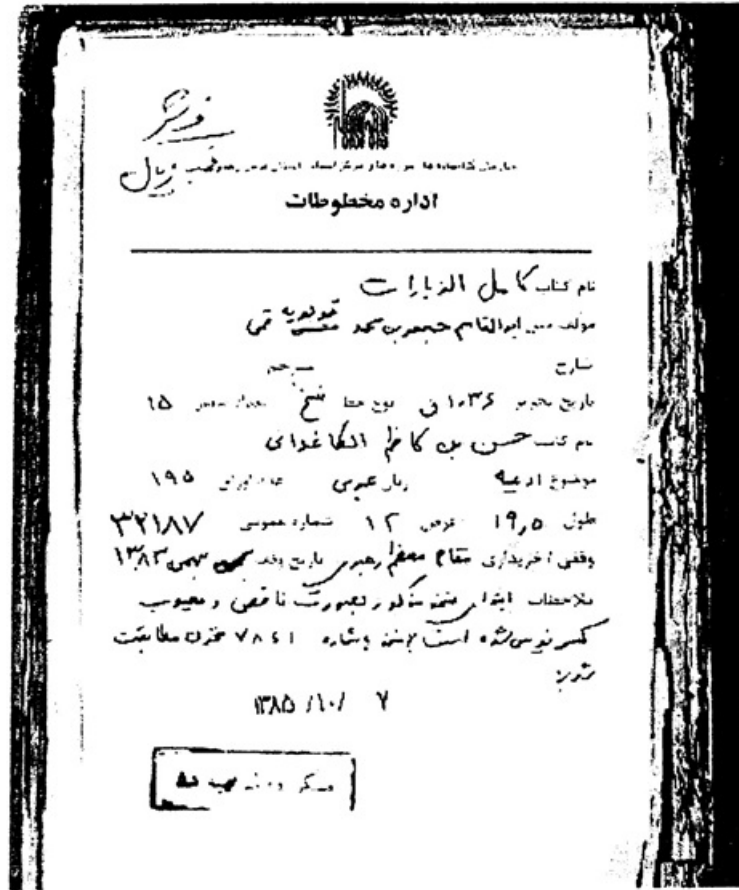 سازمان کتابخانه ها، موزه ها و مرکز اسناد آستان قدس رضوی
اداره مخطوطات
نام کتاب کامل الزیارات
مولف ابوالقاسم جعفر بن محمد قولویه قمی
شارح مترجم
تاریخ تحریر ۱۰۳۶ ق نوع خط نسخ تعداد سطر ۱۵
نام کاتب حسن بن کاظم الکاغذی
موضوع ادعیه زبان عربی عدد اوراق ۱۹۵
طول ۱۹٫۵ عرض ۱۲ شماره عمومی ۳۲۱۸۷
وقفی / خریداری مقام معظم رهبری تاریخ وقف بهمن ۱۳۸۳
ملاحظات ابتدای نسخه مذکور بصورت ناقص و معیوب
است شماره ۷۸۴۱ مخزن مطابقت
۱۳۸۵/۱۰/ ۷